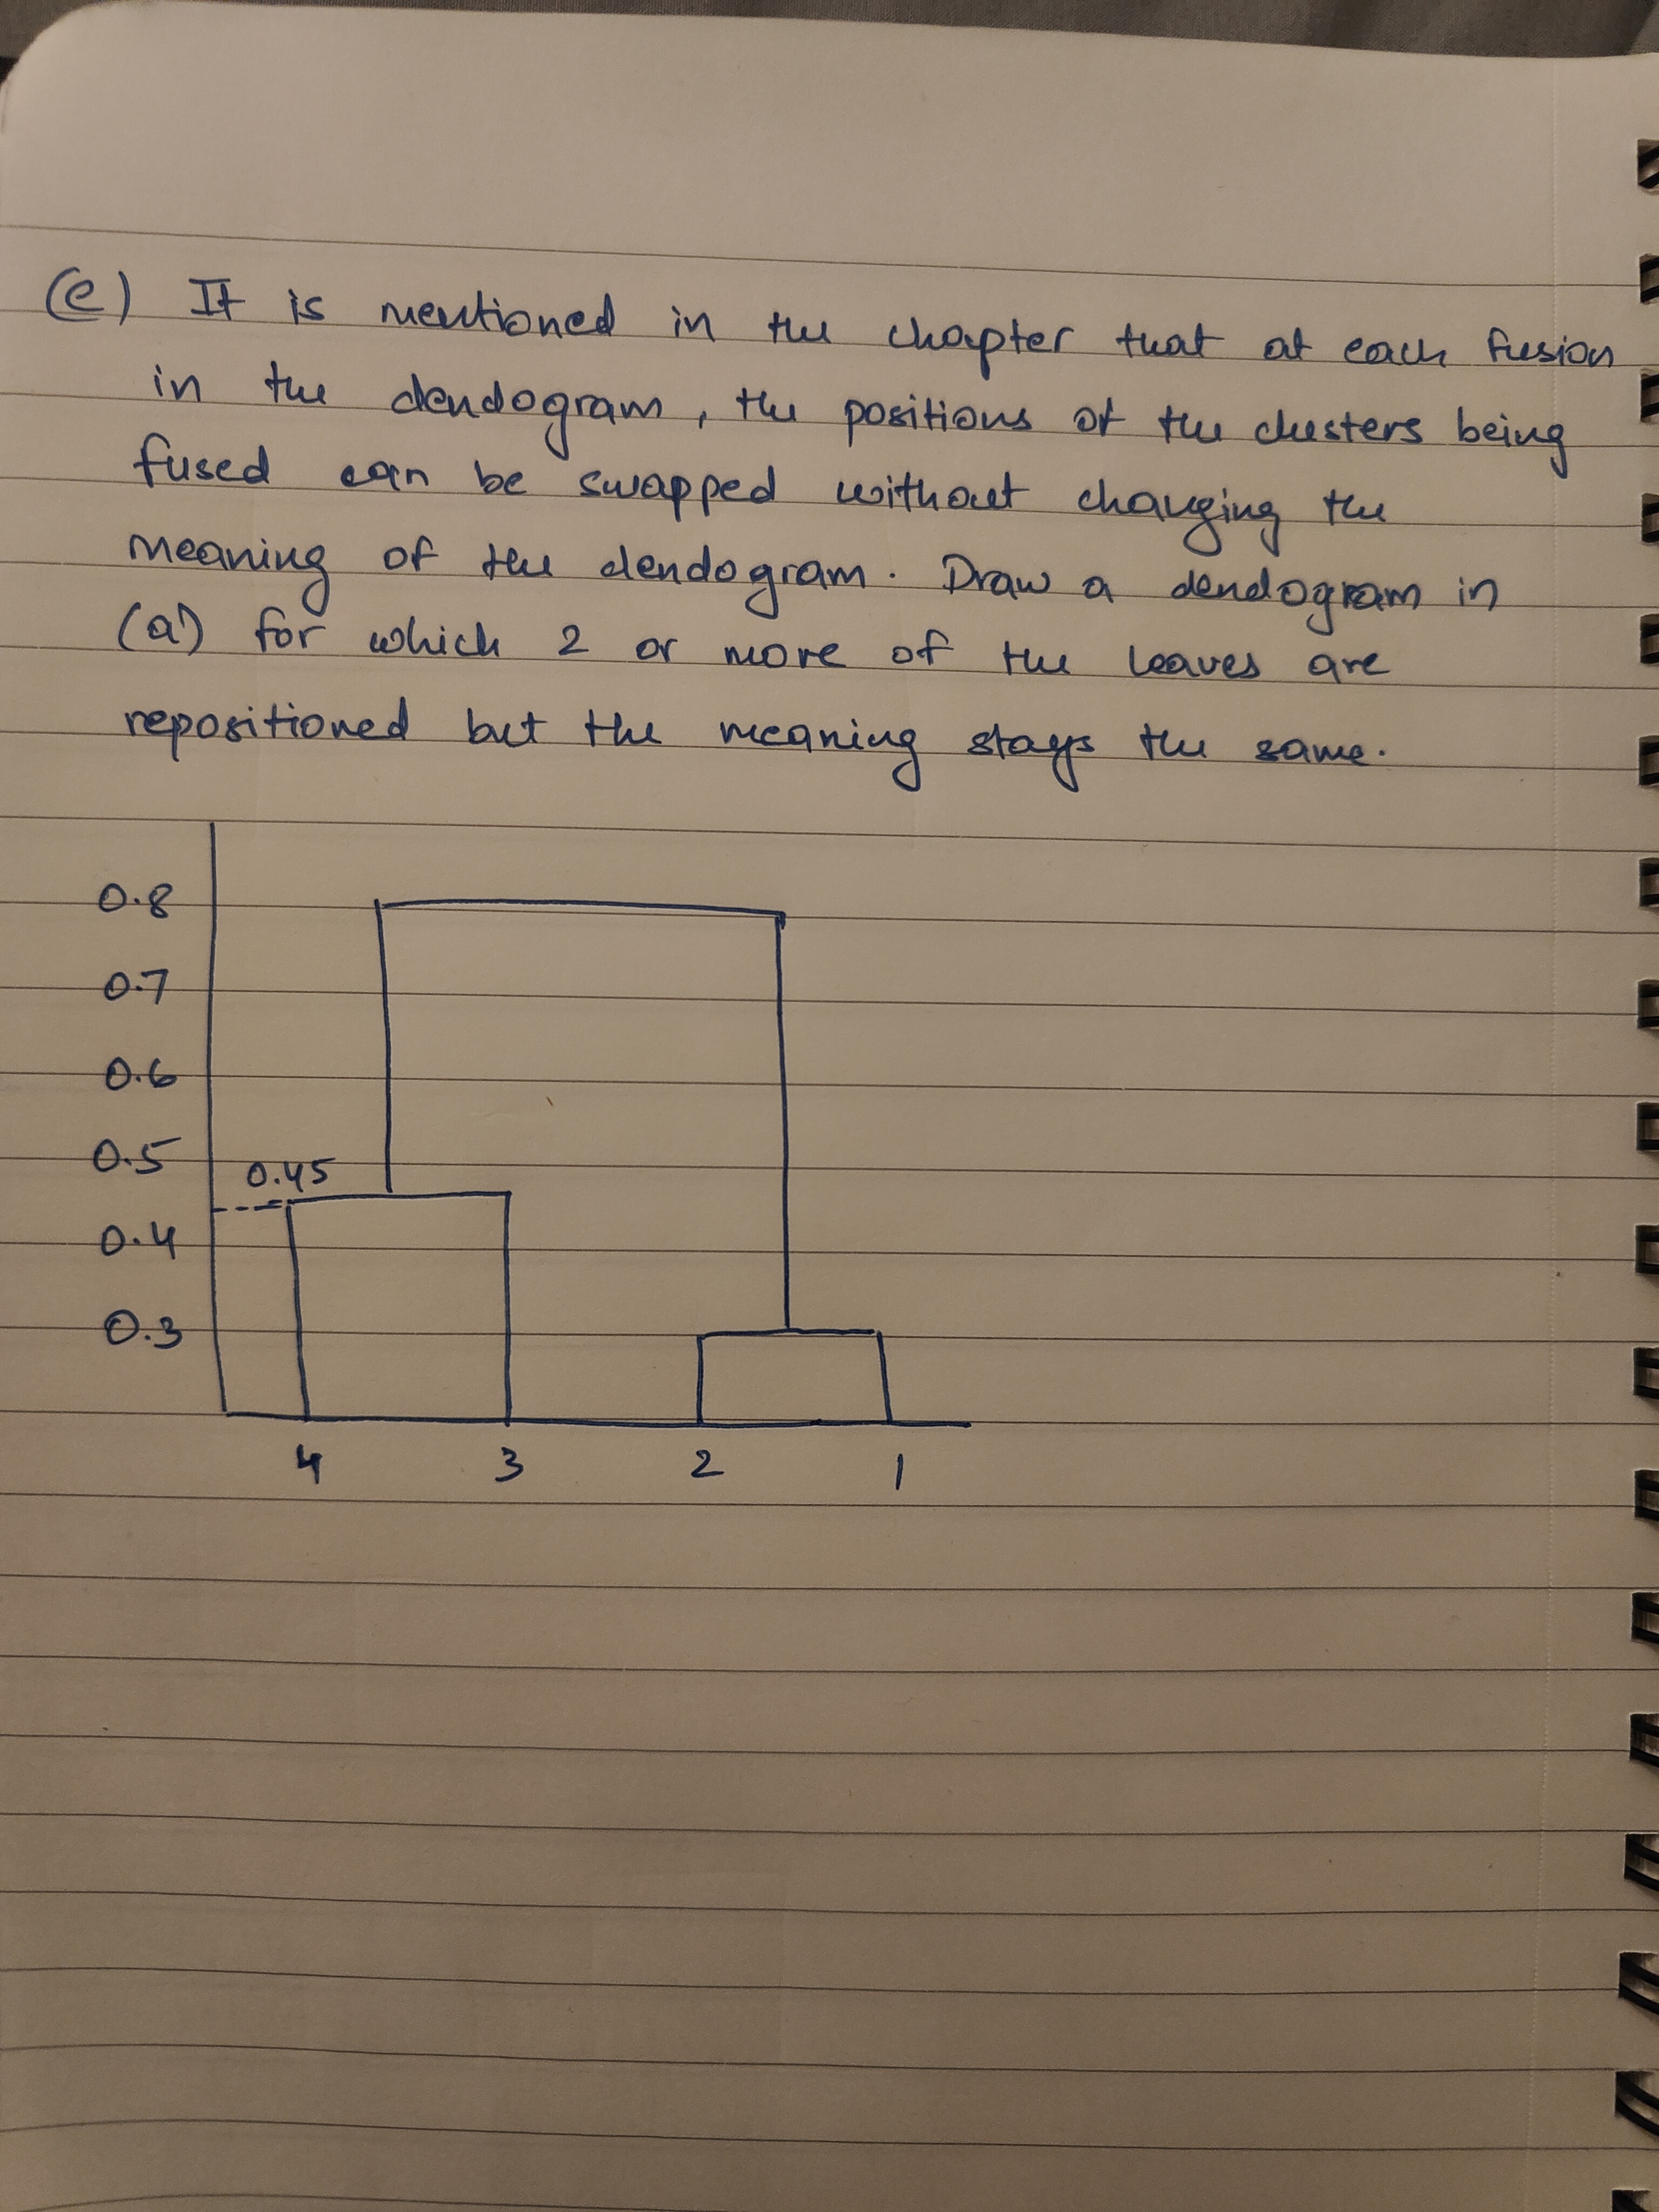 (e) It is mentioned in the chapter that at each fusion
in the dendogram, the positions of the clusters being
fused can be swapped without changing the
meaning of the dendogram. Draw a dendogram in
(a) for which 2 or more of the leaves are
repositioned but the meaning stays the same.
0.8
0.7
0.6
0.5
0.45
0.4
0.3
4 3 2 1